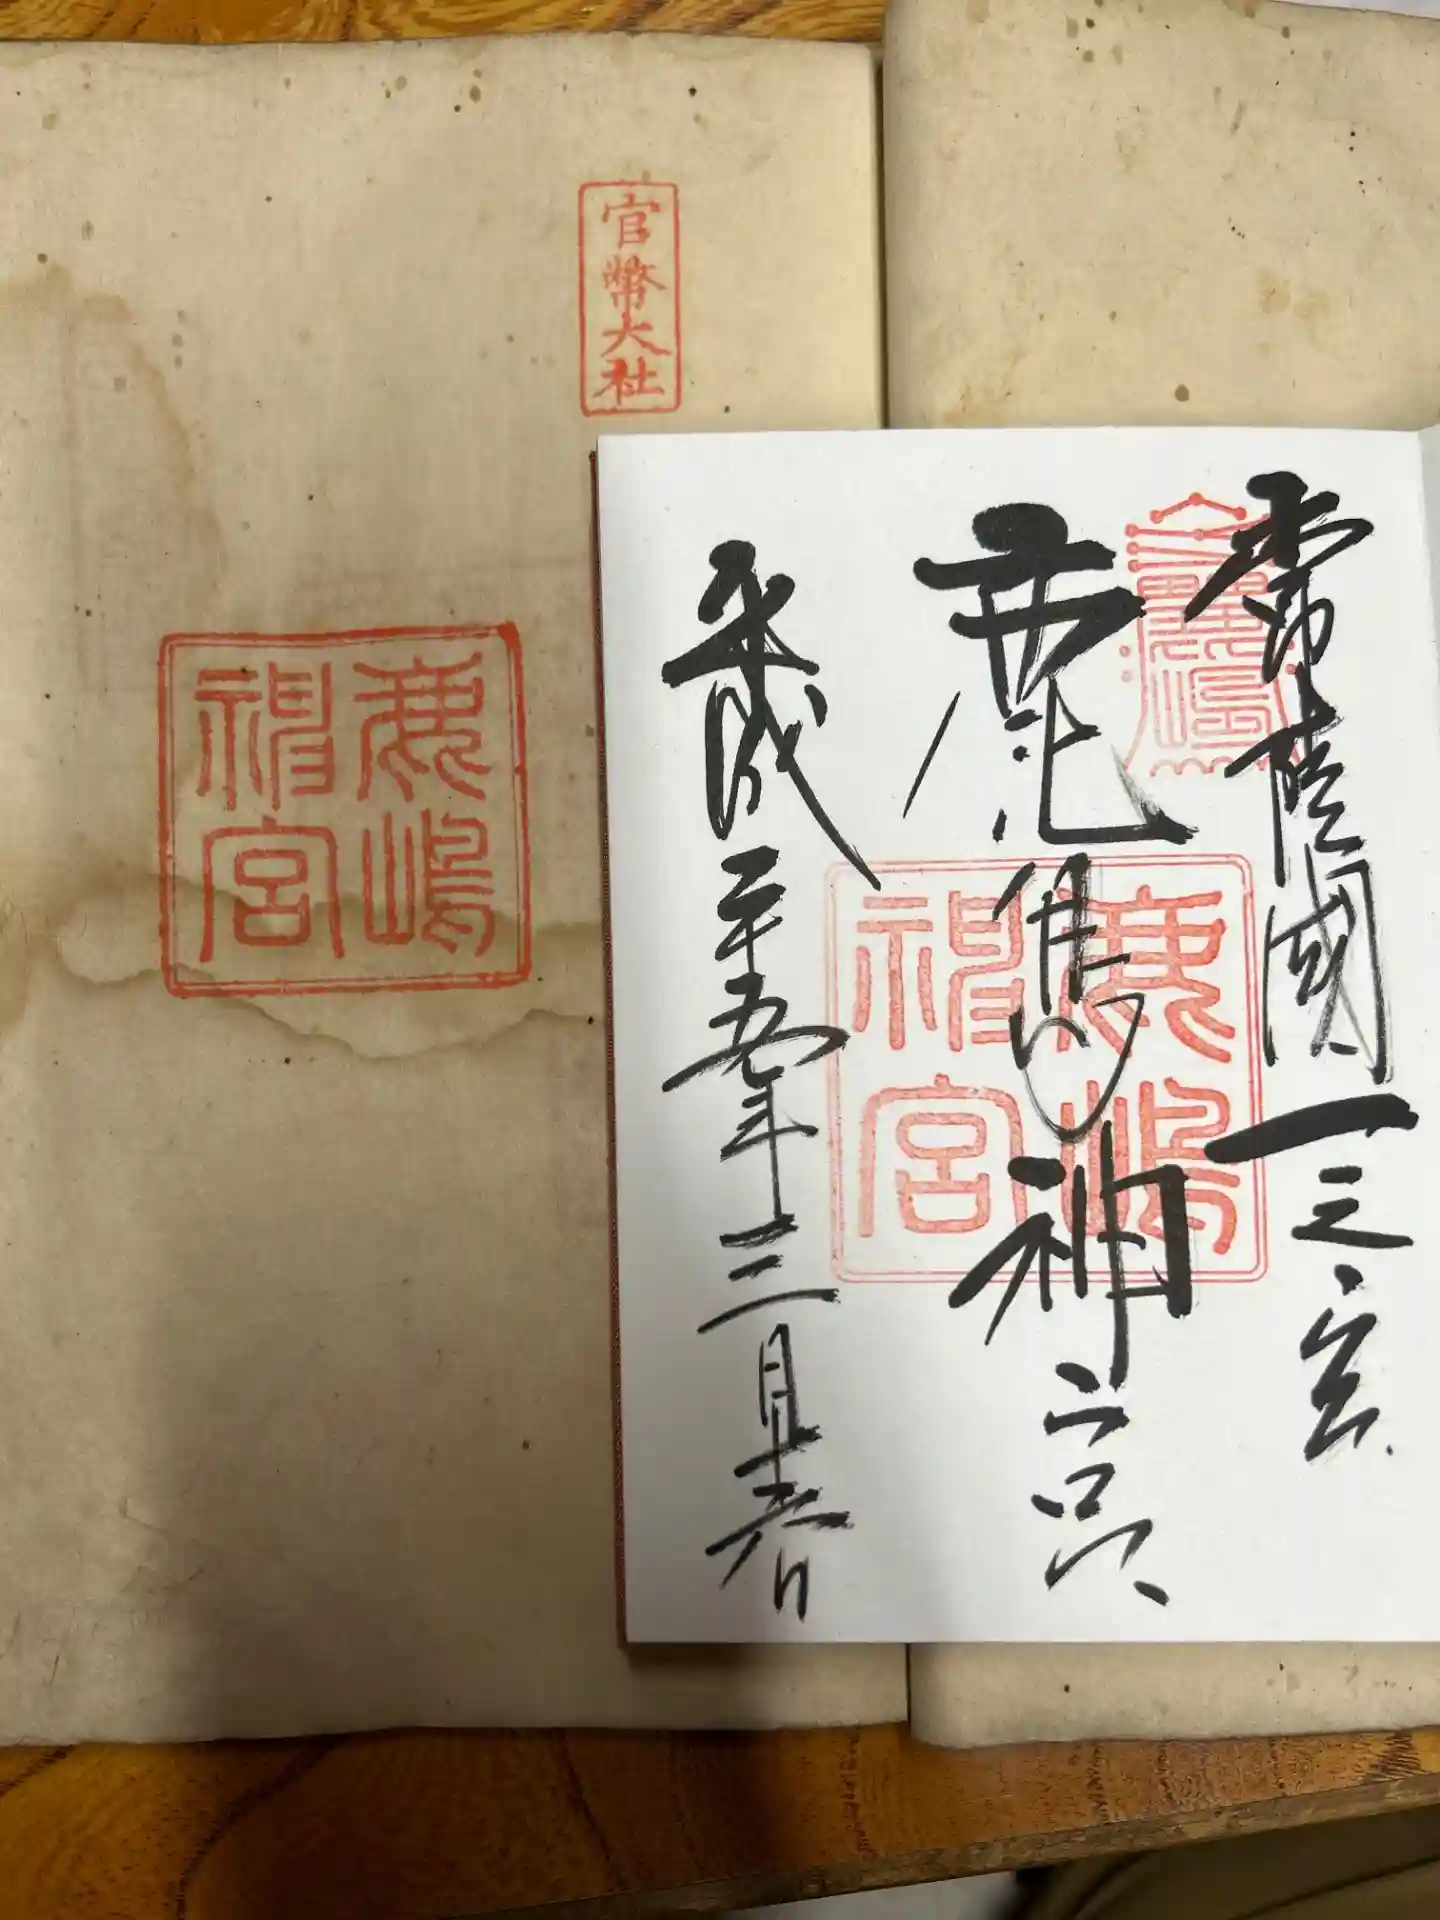 官幣大社
鹿嶋
神宮
常陸國一之宮
鹿島神宮
鹿嶋
神宮
平成二十五年三月